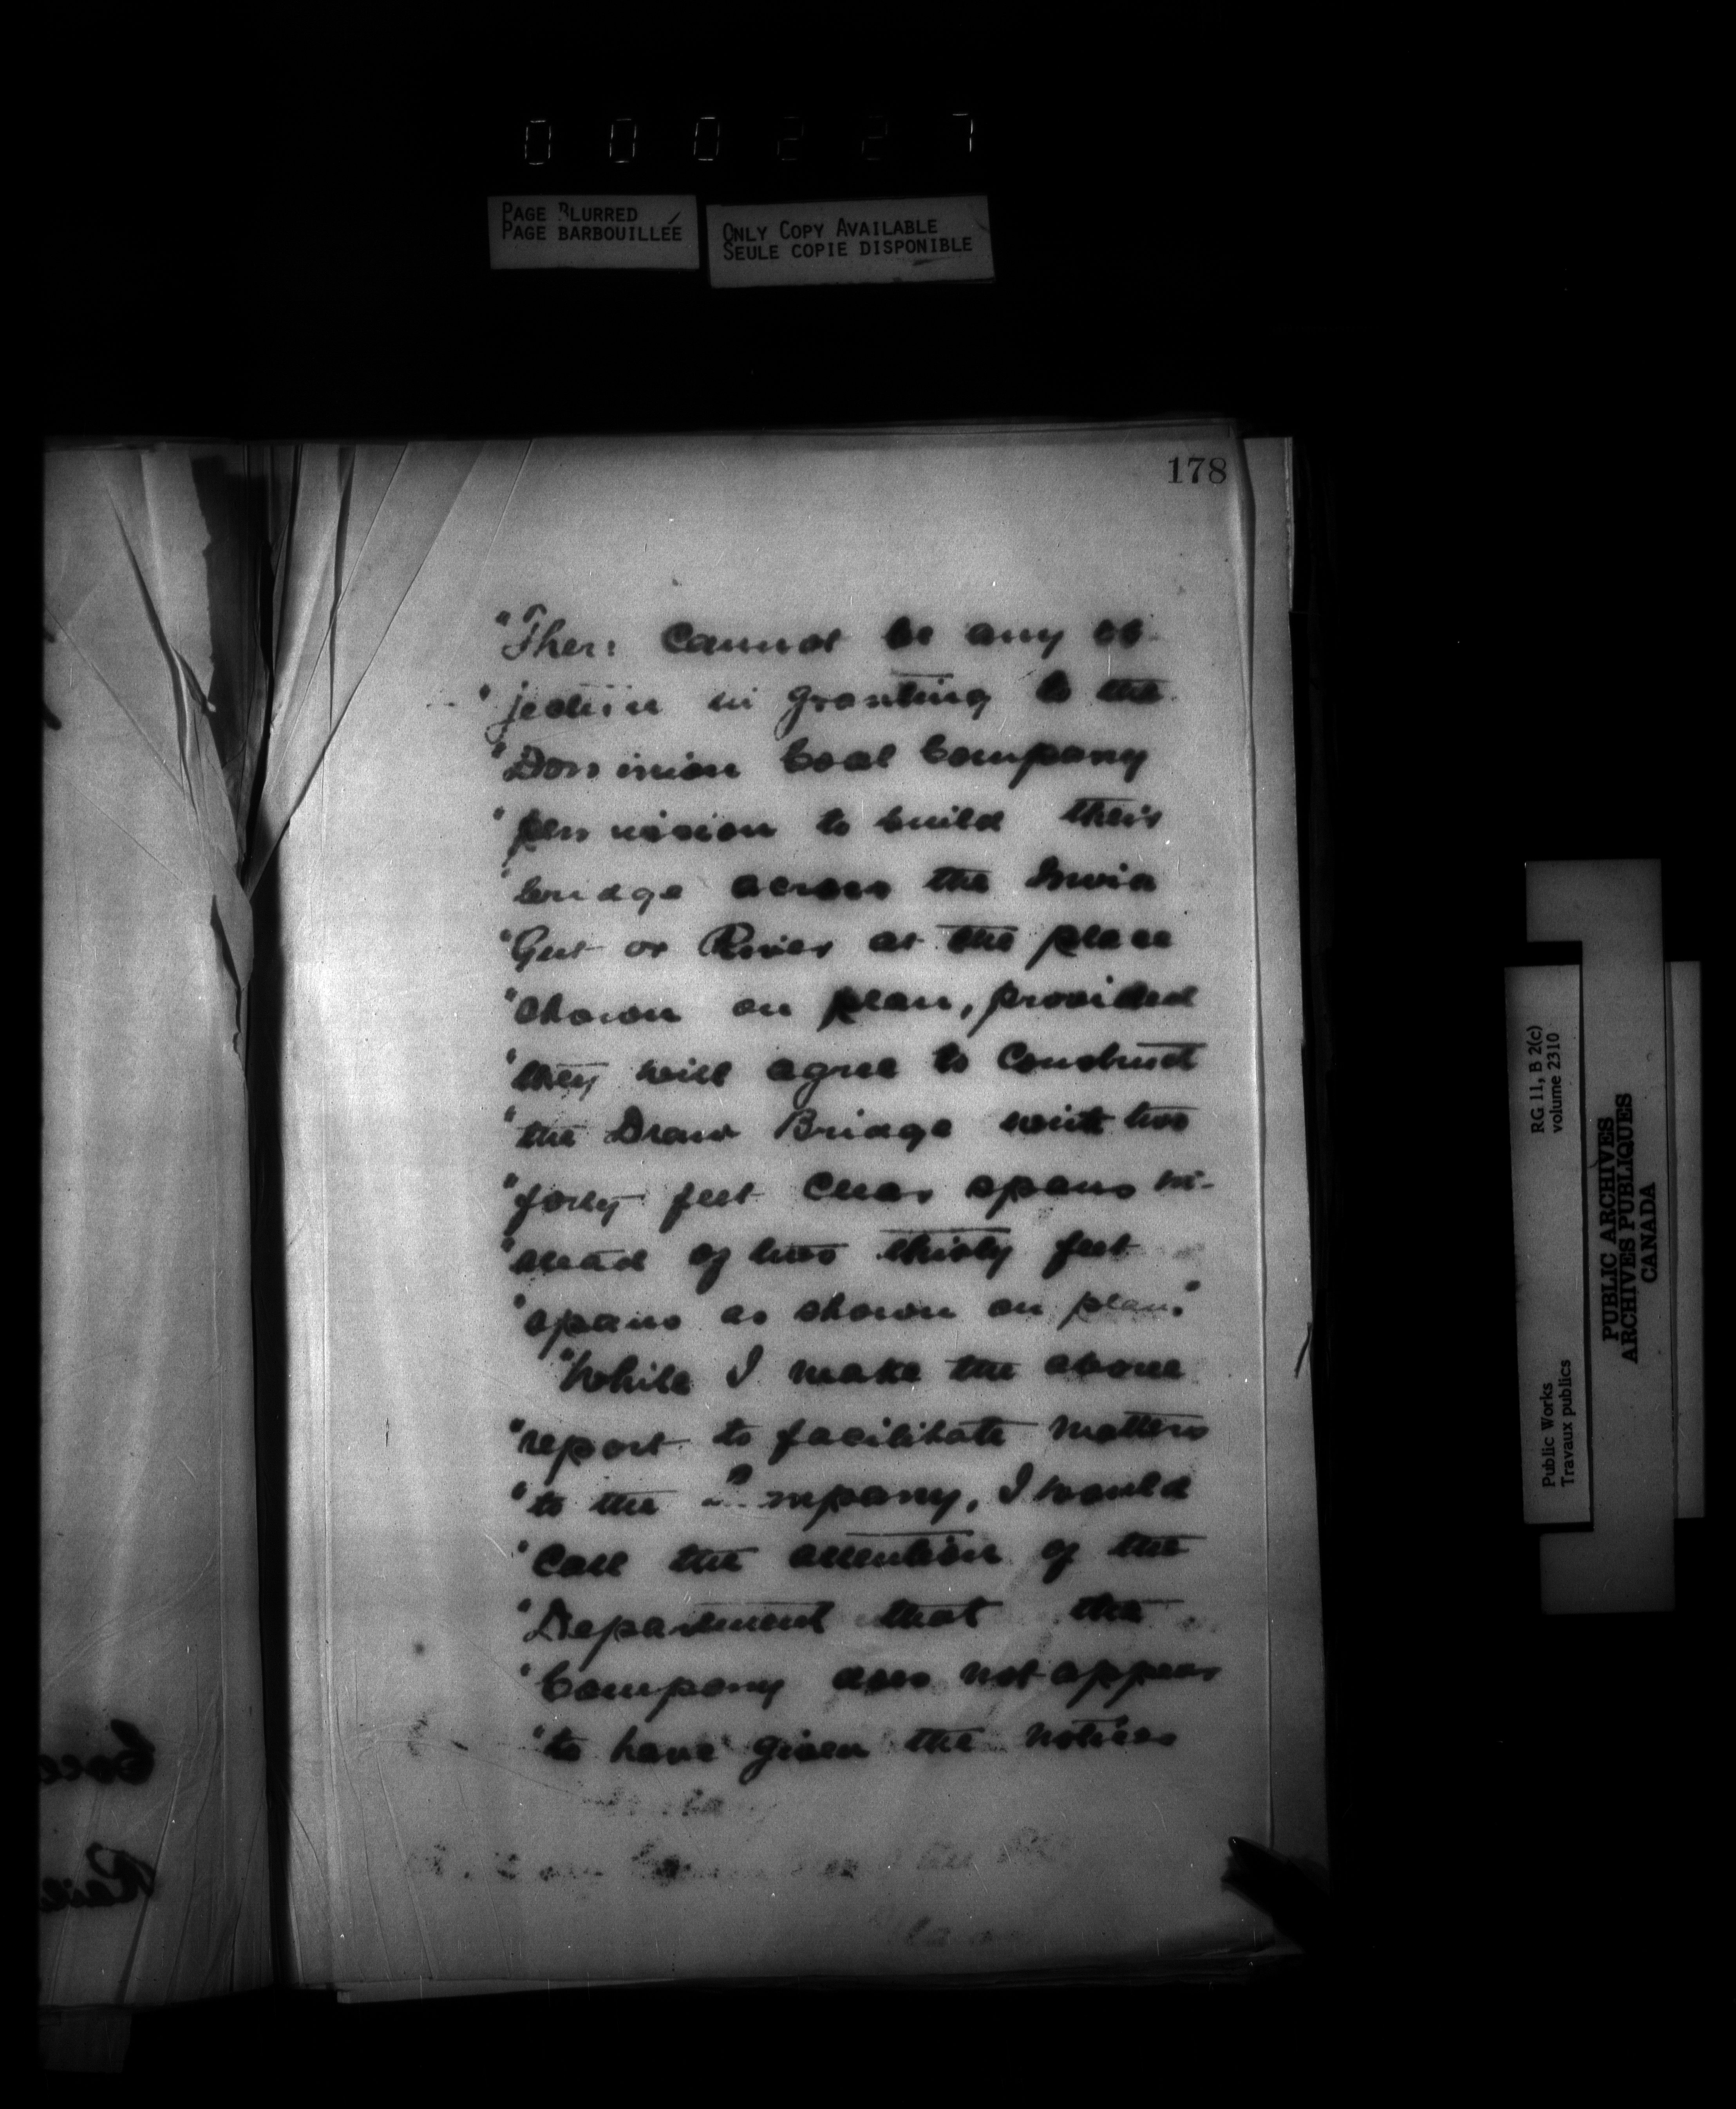 000227
PAGE BLURRED
PAGE BARBOUILLÉE
ONLY COPY AVAILABLE
SEULE COPIE DISPONIBLE
178
"There cannot be any ob-
"jection in granting to the
"Dominion Coal Company
"permission to build their
"bridge across the Mira
"Gut or River at the place
"shown on plan, provided
"they will agree to construct
"the Draw Bridge with two
"forty feet clear spans in-
"stead of two thirty feet
"spans as shown on plan."
"While I make the above
"report to facilitate matters
"to the Company, I would
"call the attention of the
"Department that the
"Company does not appear
"to have given the notices
RG 11, B 2(c)
volume 2310
Public Works
Travaux publics
PUBLIC ARCHIVES
ARCHIVES PUBLIQUES
CANADA